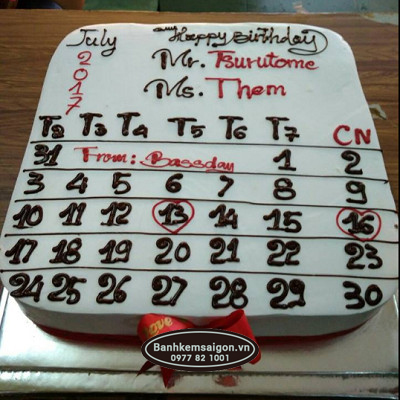 July Happy Birthday
2017
Mr. Tsurutome
Ms. Thơm
T2 T3 T4 T5 T6 T7 CN
31 From: Bassday 1 2
3 4 5 6 7 8 9
10 11 12 13 14 15 16
17 18 19 20 21 22 23
24 25 26 27 28 29 30
Love
Banhkemsaigon.vn
0977 82 1001